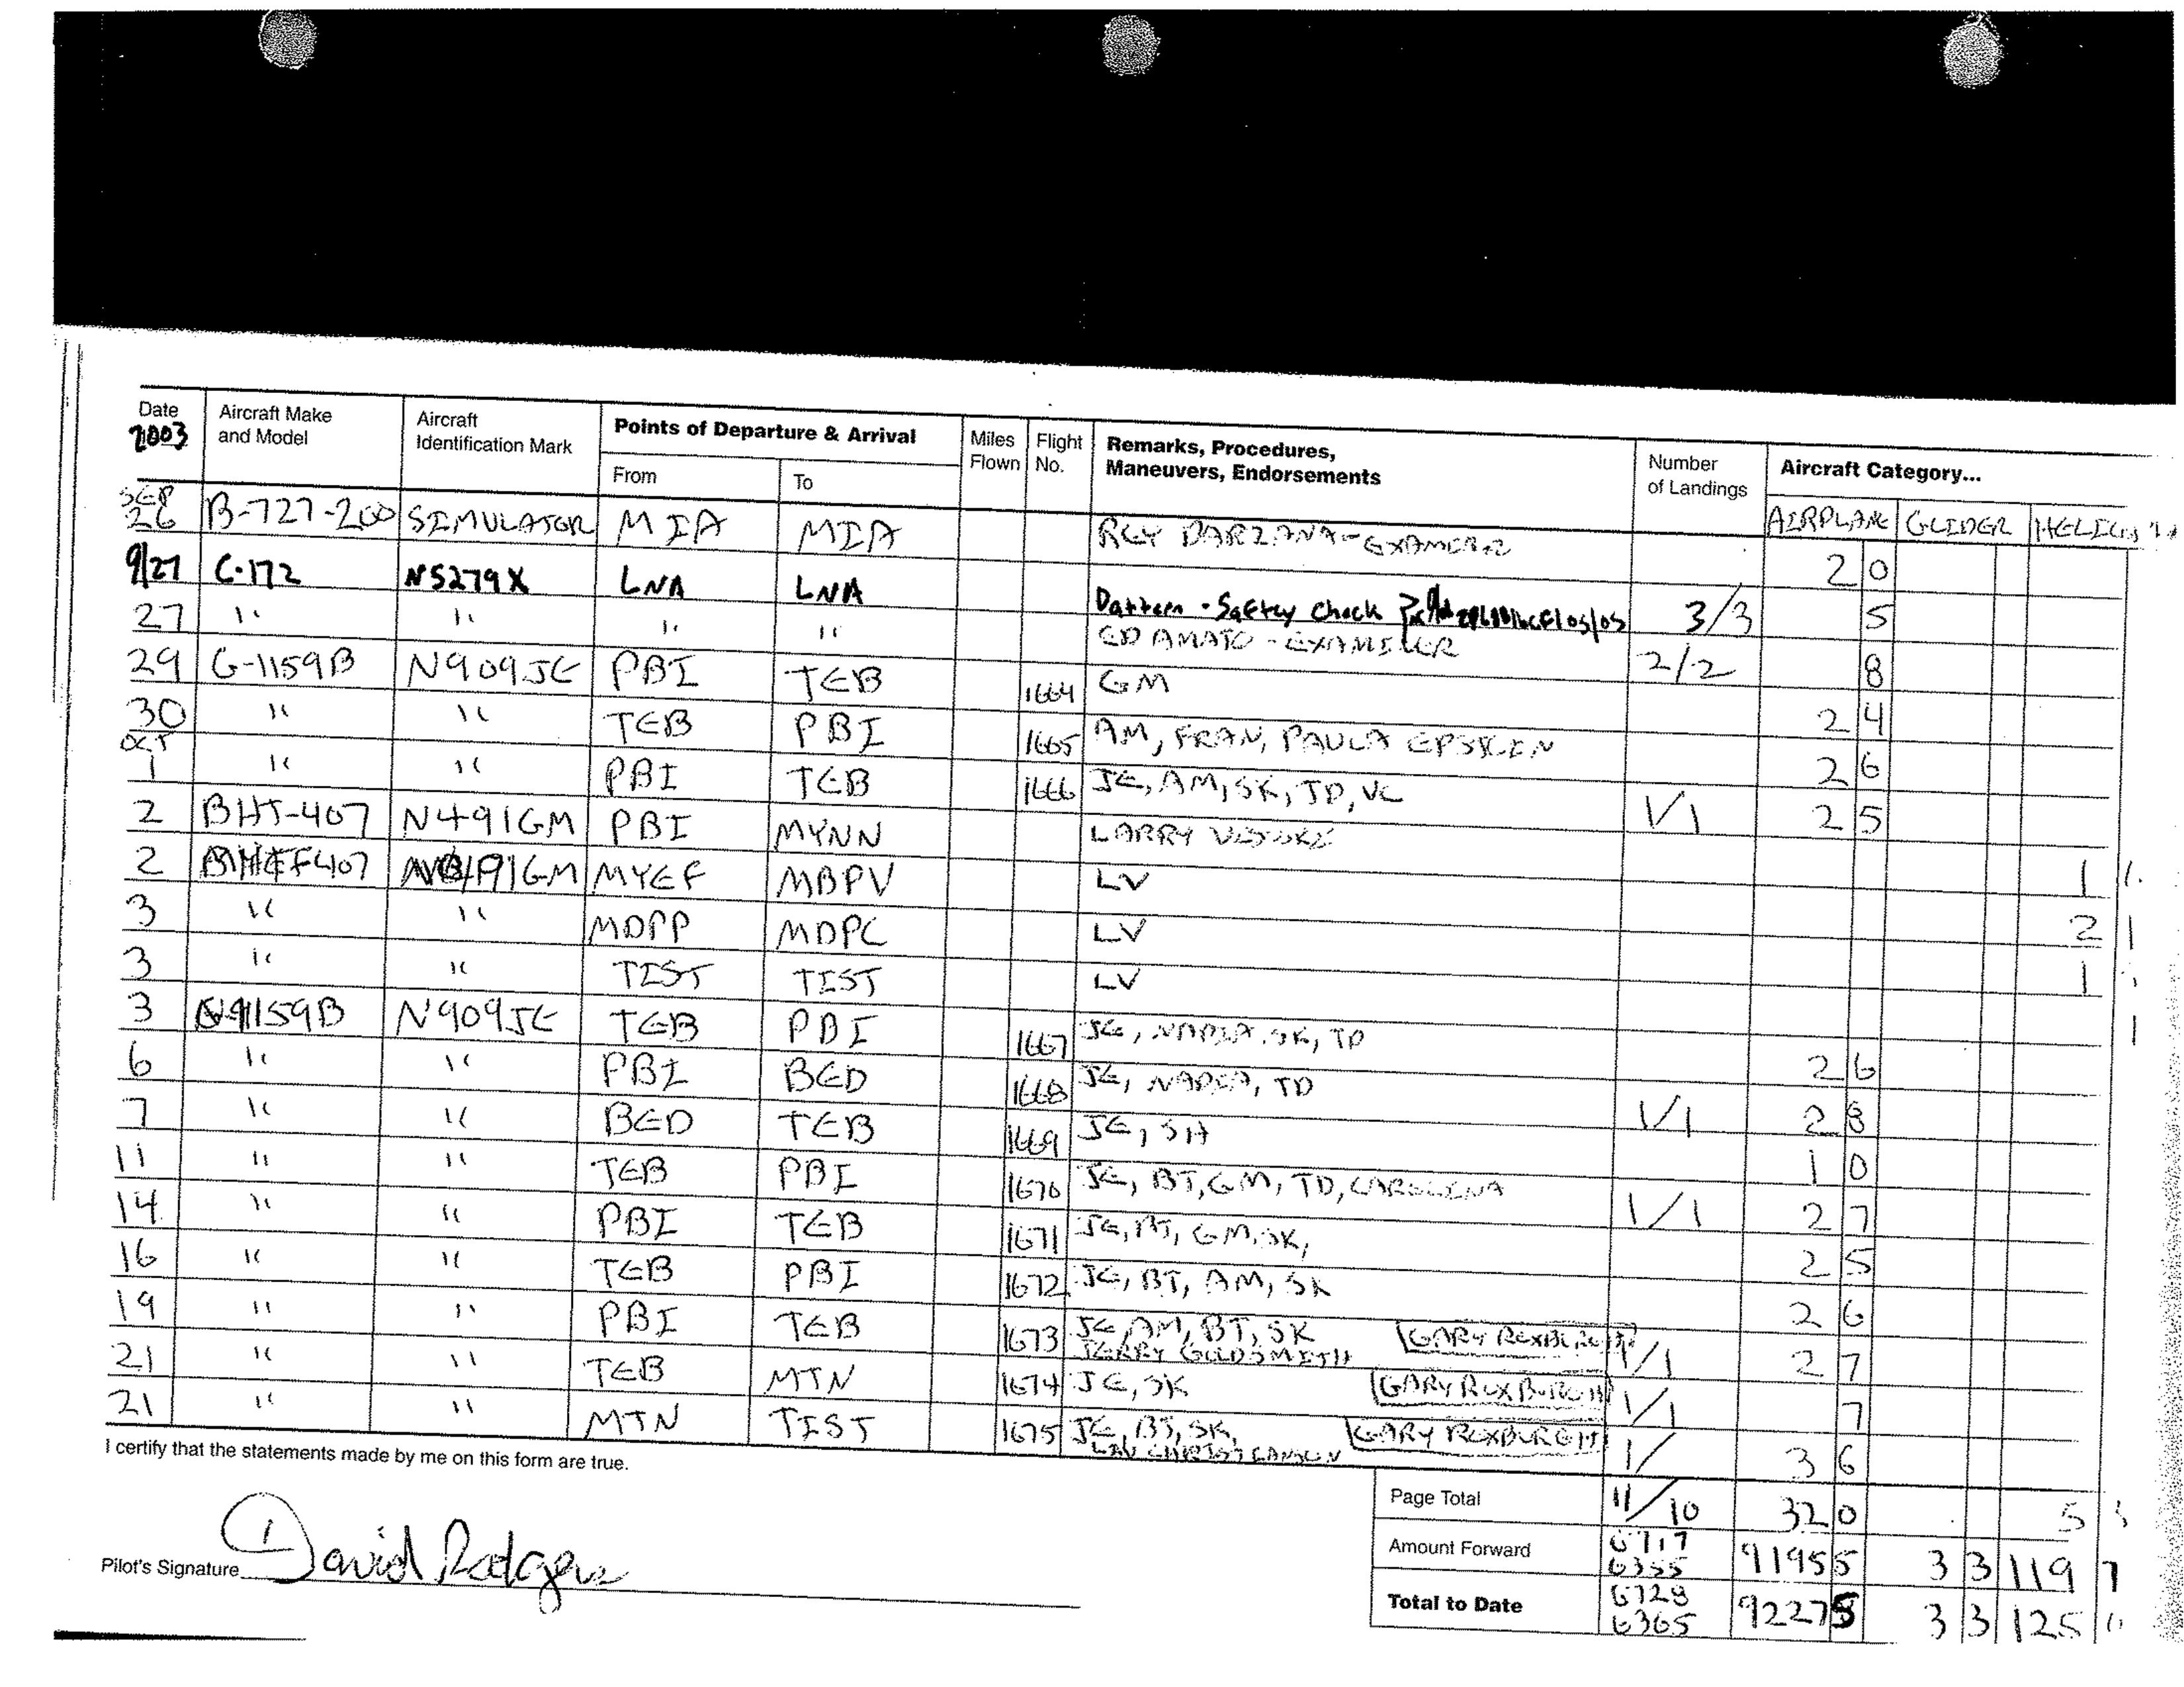 Date 2003 Aircraft Make and Model Aircraft Identification Mark Points of Departure & Arrival From To Miles Flown Flight No. Remarks, Procedures, Maneuvers, Endorsements Number of Landings Aircraft Category...
AIRPLANE GLIDER
SEP 26 B-727-200 SIMULATOR MIA MIA 2 0
9/27 C-172 N5279X LNA LNA Pattern - Saftey Check 3/3 5
27 " " " " ED AMATO - EXAMINER 2/2 8
29 G-1159B N909JE PBI TEB 1664 GM 2 4
30 " " TEB PBI 1665 AM, FRAN, PAULA EPSTEIN 2 6
OCT 1 " " PBI TEB 1666 JE, AM, SK, TD, VC 1/1 2 5
2 BHT-407 N491GM PBI MYNN LARRY 1
2 407 GM MYEF MBPV LV 2 1
3 " " MDPP MDPC LV 1
3 " " TIST TIST LV 1
3 1159B N909JE TEB PBI 1667 JE, NADIA, SK, TD 2 6
6 " " PBI BED 1668 JE, NADIA, TD 1/1 2 8
7 " " BED TEB 1669 JE, SH 1 0
11 " " TEB PBI 1670 JE, BT, GM, TD, CAROLINA 1/1 2 7
14 " " PBI TEB 1671 JE, BT, GM, SK, 2 5
16 " " TEB PBI 1672 JE, BT, AM, SK 2 6
19 " " PBI TEB 1673 JE, AM, BT, SK GARY ROXBURGH 1/1 2 7
JERRY GOLDSMITH
21 " " TEB MTN 1674 JE, SK GARY ROXBURGH 1/1 7
21 " " MTN TIST 1675 JE, BT, SK, GARY ROXBURGH 1/ 3 6
I certify that the statements made by me on this form are true.
Page Total 11/10 32 0 5
Amount Forward 6717 6355 9195 5 3 3 119 7
Pilot's Signature David Rodgers
Total to Date 6728 6365 9227 5 3 3 125